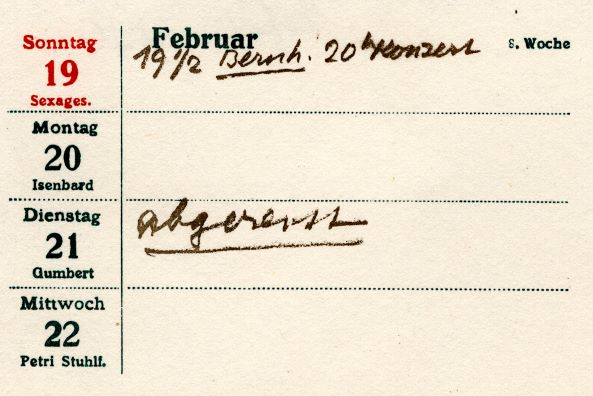 Februar
8. Woche
Sonntag
19
Sexages.
19 1/2 Bernh. 20h Konzert
Montag
20
Isenbard
Dienstag
21
Gumbert
abgereist
Mittwoch
22
Petri Stuhlf.